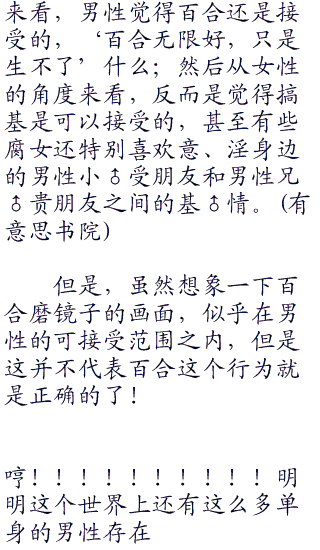 来看，男性觉得百合还是接
受的，‘百合无限好，只是
生不了’什么；然后从女性
的角度来看，反而是觉得搞
基是可以接受的，甚至有些
腐女还特别喜欢意、淫身边
的男性小♂受朋友和男性兄
♂贵朋友之间的基♂情。(有
意思书院)
但是，虽然想象一下百
合磨镜子的画面，似乎在男
性的可接受范围之内，但是
这并不代表百合这个行为就
是正确的了！
哼！！！！！！！！！！明
明这个世界上还有这么多单
身的男性存在